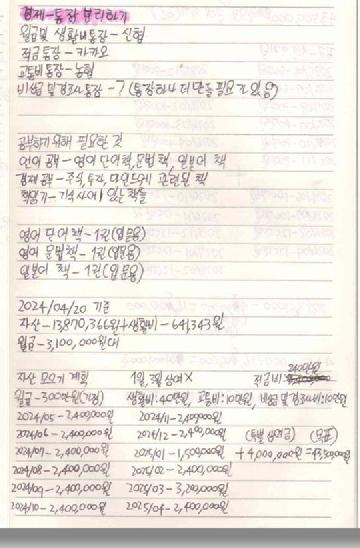 경제-통장 분리하기
월급 및 생활비통장 - 신협
적금통장 - 카카오
교통비통장 - 농협
비상금 및 경조사통장 - ? (통장하나 더 만들 필요가 있음)
공부하기 위해 필요한 것
언어 공부 - 영어 단어책, 문법 책, 일본어 책
경제 공부 - 주식, 투자, 마인드에 관련된 책
책읽기 - 기숙사에 있는 책들
영어 단어 책 - 1권(입문용)
영어 문법책 - 1권(입문용)
일본어 책 - 1권(입문용)
2024/04/20 기준
자산 - 13,870,366원 + 생활비 - 641,343원
월급 - 3,100,000원대
자산 모으기 계획 1월, 3월 상여 X 적금비: 240만원
월급 - 300만원(가정) 생활비: 40만원, 교통비: 10만원, 비상금 및 경조사비: 10만원
2024/05 - 2,400,000원 2024/11 - 2,400,000원
2024/06 - 2,400,000원 2024/12 - 2,400,000원 (특별 상여금) (목표)
2024/07 - 2,400,000원 2025/01 - 1,500,000원 + 4,000,000원 =
2024/08 - 2,400,000원 2025/02 - 2,400,000원
2024/09 - 2,400,000원 2025/03 - 3,200,000원
2024/10 - 2,400,000원 2025/04 - 2,400,000원